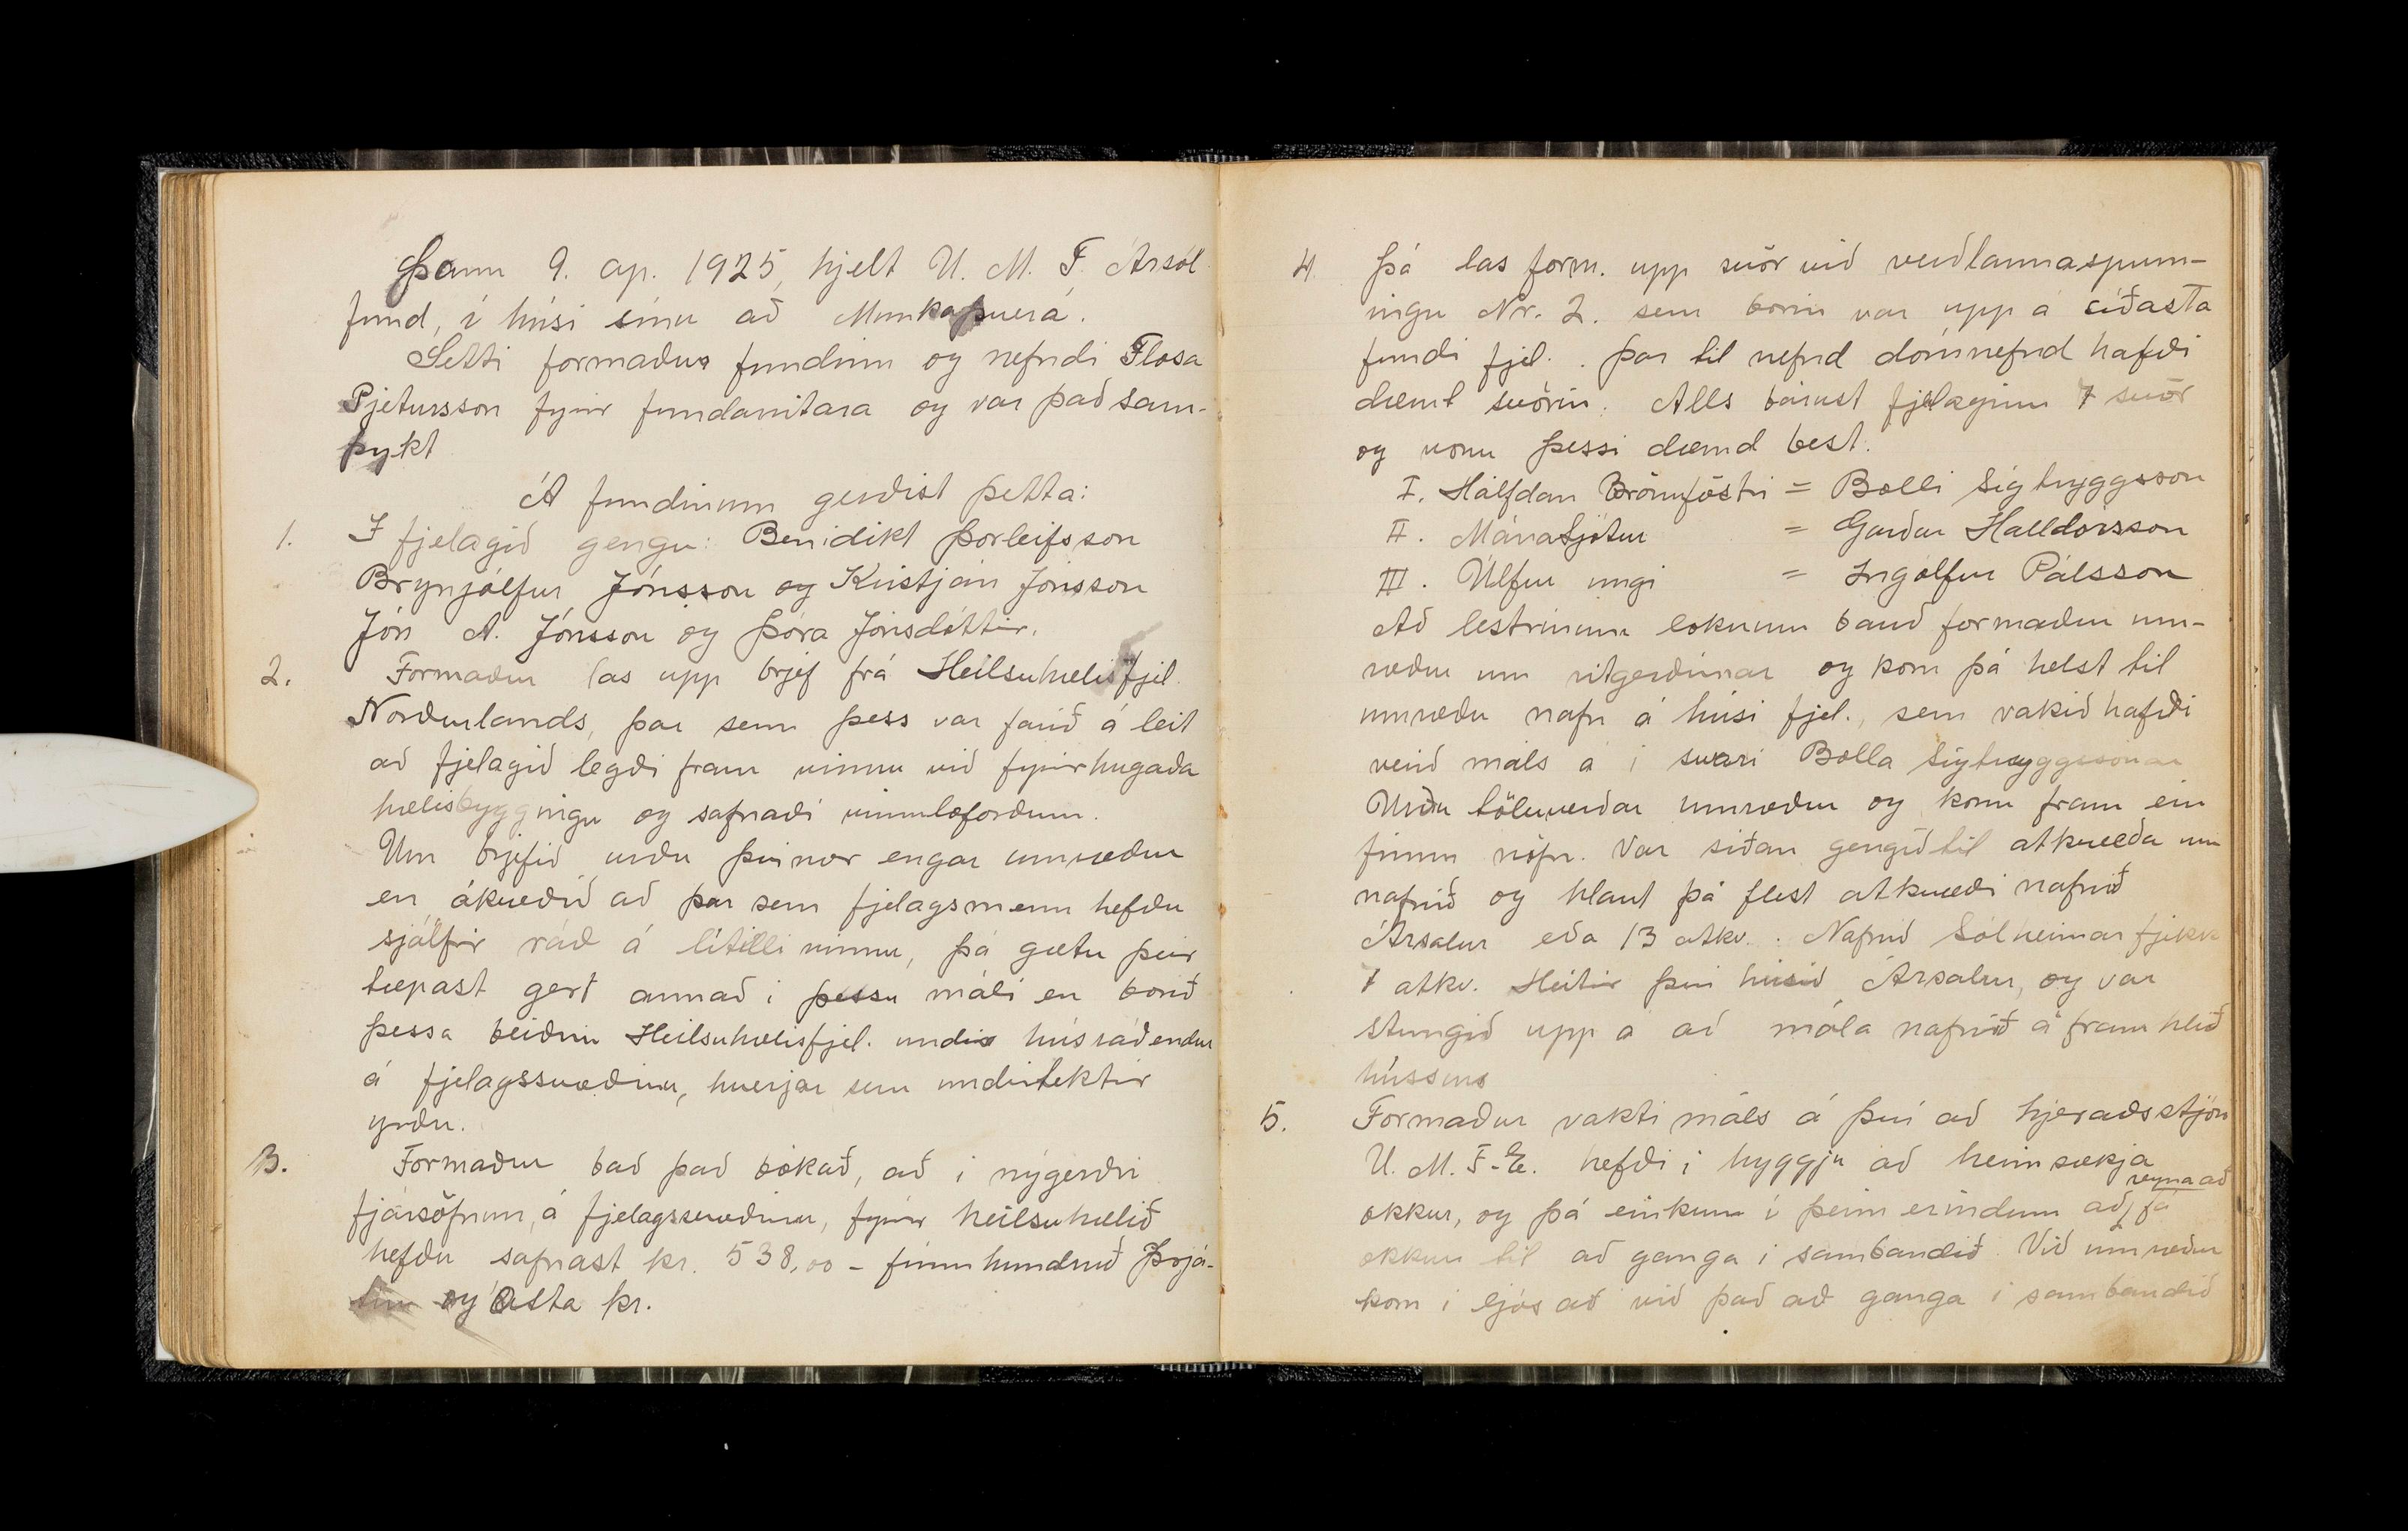 Þann 9. ap. 1925, hjelt U. M. F. Ársól
fund, í húsi sínu að Munkaþverá.
Setti formaður fundinn og nefndi Flosa
Pjetursson fyrir fundarritara og var það sam-
þykt
Á fundinum gerðist þetta:
1. Í fjelagið gengu: Benidikt Þorleifsson
Brynjólfur Jónsson og Kristján Jónsson
Jón A. Jónsson og Þóra Jónsdóttir.
2. Formaður las upp brjef frá Heilsuhælisfjel.
Norðurlands, þar sem þess var farið á leit
að fjelagið legði fram vinnu við fyrirhugaða
hælisbyggingu og safnaði vinnuloforðum.
Um brjefið urðu því nær engar umræður
en ákveðið að þar sem fjelagsmenn hefðu
sjálfir ráð á lítilli vinnu, þá gætu þeir
tæpast gert annað í þessu máli en borið
þessa beiðni Heilsuhælisfjel. undir húsráðendur
á fjelagssvæðinu, hverjar sem undirtektir
yrðu.
3. Formaður bað það bókað, að í nýgerðri
fjársöfnun, á fjelagssvæðinu, fyrir heilsuhælið
hefðu safnast kr. 538,00 - fimm hundruð þrjá-
tíu og átta kr.
4. Þá las form. upp svör við verðlaunaspurn-
ingu Nr. 2. sem borin var upp á síðasta
fundi fjel. . Þar til nefnd dómnefnd hafði
dæmt svörin. Alls bárust fjelaginu 7 svör
og voru þessi dæmd best:
I. Hálfdan Brönufóstri = Bolli Sigtryggsson
II. Mánafjötur = Garðar Halldórsson
III. Úlfur ungi = Ingólfur Pálsson
Að lestrinum loknum bauð formaður um-
ræður um ritgerðirnar og kom þá helst til
umræðu nafn á húsi fjel., sem vakið hafði
verið máls á í svari Bolla Sigtryggssonar
Urðu töluverðar umræður og komu fram ein
fimm nöfn. Var síðan gengið til atkvæða um
nafnið og hlaut þá flest atkvæði nafnið
Ársalur eða 13 atkv. . Nafnið Sólheimar fjekk
7 atkv. Heitir því húsið Ársalur, og var
stungið upp á að mála nafnið á framhlið
hússins
5. Formaður vakti máls á því að hjeraðsstjórn
U. M. F. E. hefði í hyggju að heimsækja
reyna að
okkur, og þá einkum í þeim erindum að fá
okkur til að ganga í sambandið. Við umræður
kom í ljós að við það að ganga í sambandið